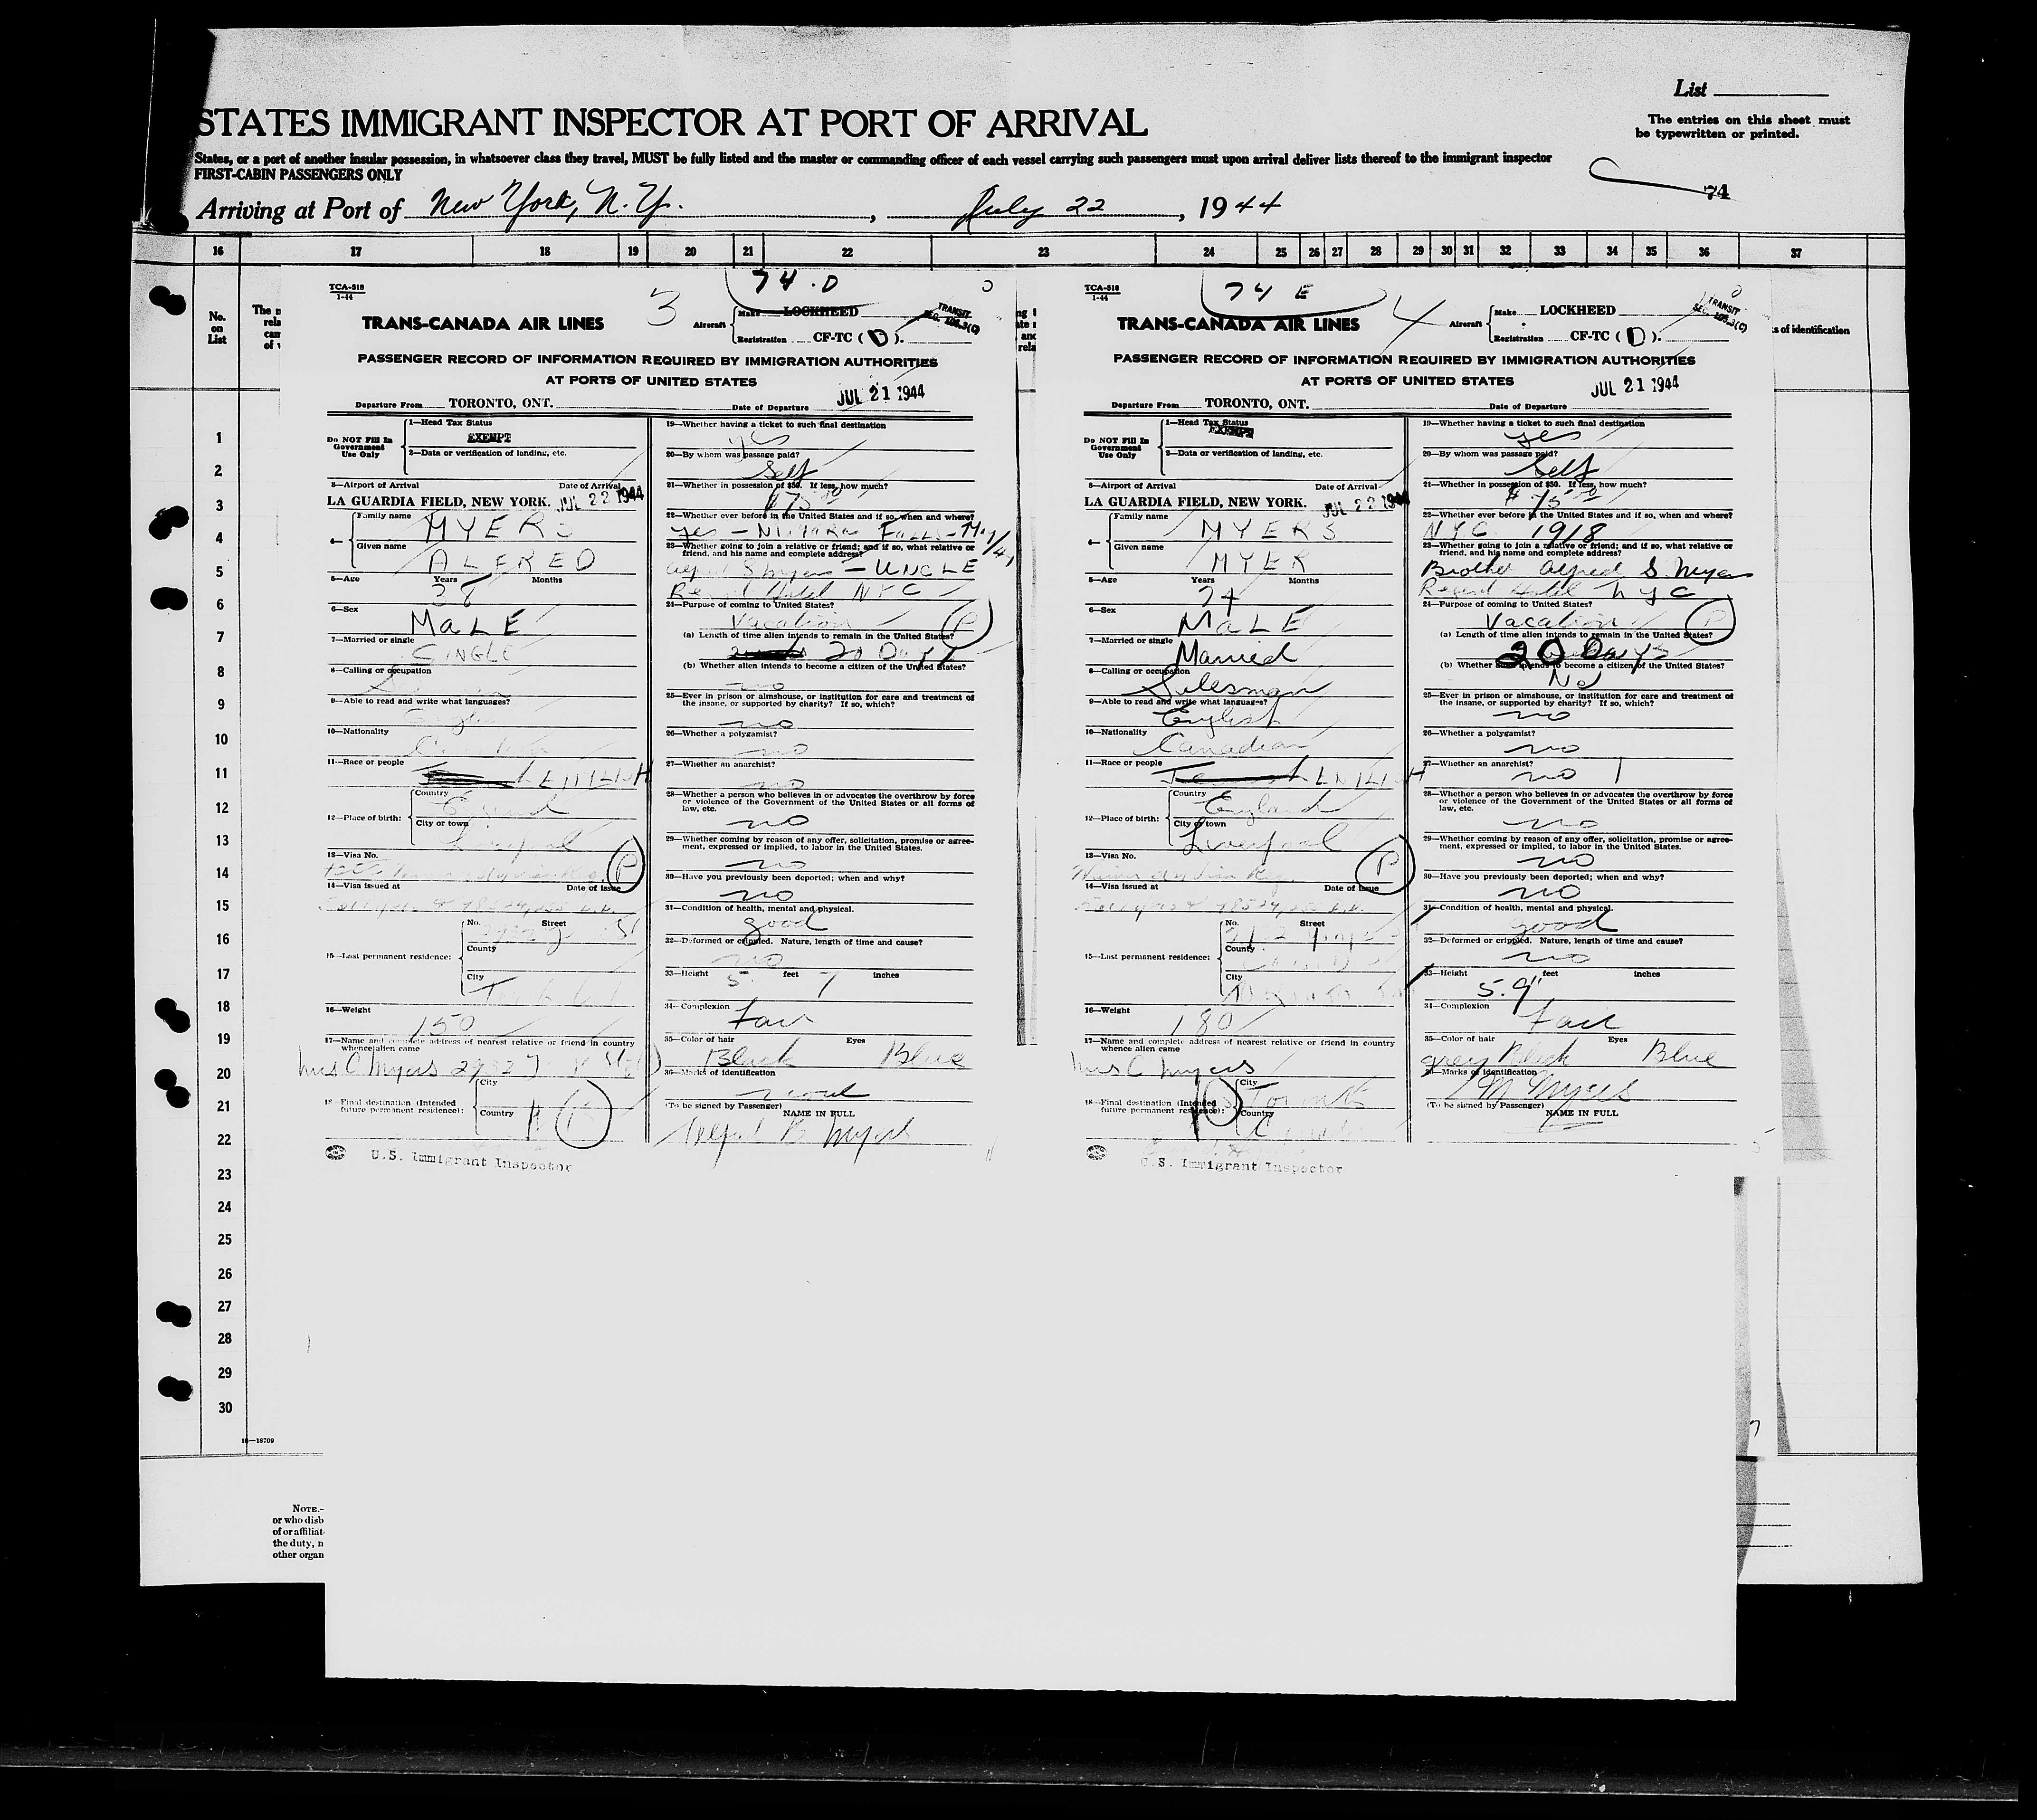 List
STATES IMMIGRANT INSPECTOR AT PORT OF ARRIVAL
The entries on this sheet must
be typewritten or printed.
States, or a port of another insular possession, in whatsoever class they travel, MUST be fully listed and the master or commanding officer of each vessel carrying such passengers must upon arrival deliver lists thereof to the immigrant inspector
FIRST-CABIN PASSENGERS ONLY
74
Arriving at Port of New York, N.Y. , July 22 , 1944
16 17 18 19 20 21 22 23 24 25 26 27 28 29 30 31 32 33 34 35 36 37
No.
on
List
s of identification
1
2
3
4
5
6
7
8
9
10
11
12
13
14
15
16
17
18
19
20
21
22
23
24
25
26
27
28
29
30
16—18709
NOTE.—
or who disb
of or affiliat
the duty, n
other organ
TCA-518
1-44
74.D
3
TRANS-CANADA AIR LINES
Aircraft
Make LOCKHEED
Registration CF-TC (D).
TRANSIT
SEC. 103.3(C)
PASSENGER RECORD OF INFORMATION REQUIRED BY IMMIGRATION AUTHORITIES
AT PORTS OF UNITED STATES
Departure From TORONTO, ONT. Date of Departure JUL 21 1944
Do NOT Fill In
Government
Use Only
1—Head Tax Status
EXEMPT
2—Data or verification of landing, etc.
3—Airport of Arrival Date of Arrival
LA GUARDIA FIELD, NEW YORK. JUL 22 1944
4—
Family name MYERS
Given name ALFRED
5—Age Years Months
38
6—Sex
MALE
7—Married or single
SINGLE
8—Calling or occupation
9—Able to read and write what languages?
English
10—Nationality
Canadian
11—Race or people
ENGLISH
12—Place of birth:
Country England
City or town Liverpool
13—Visa No.
P
14—Visa issued at Date of issue
15—Last permanent residence:
No. Street
County
City
16—Weight
150
17—Name and complete address of nearest relative or friend in country
whence alien came
Mrs C Myers
18—Final destination (Intended
future permanent residence):
City
Country
U.S. Immigrant Inspector
19—Whether having a ticket to such final destination
yes
20—By whom was passage paid?
Self
21—Whether in possession of $50. If less, how much?
$75.00
22—Whether ever before in the United States and if so, when and where?
yes — Niagara Falls — May/41
23—Whether going to join a relative or friend; and if so, what relative or
friend, and his name and complete address?
Alfred S Myers — UNCLE
Regent Hotel NYC
24—Purpose of coming to United States?
Vacation P
(a) Length of time alien intends to remain in the United States?
20 Days
(b) Whether alien intends to become a citizen of the United States?
no
25—Ever in prison or almshouse, or institution for care and treatment of
the insane, or supported by charity? If so, which?
no
26—Whether a polygamist?
no
27—Whether an anarchist?
no
28—Whether a person who believes in or advocates the overthrow by force
or violence of the Government of the United States or all forms of
law, etc.
no
29—Whether coming by reason of any offer, solicitation, promise or agree-
ment, expressed or implied, to labor in the United States.
no
30—Have you previously been deported; when and why?
no
31—Condition of health, mental and physical.
good
32—Deformed or crippled. Nature, length of time and cause?
no
33—Height 5 feet 7 inches
34—Complexion
Fair
35—Color of hair Eyes
Black Blue
36—Marks of identification
(To be signed by Passenger)
NAME IN FULL
Alfred B Myers
TCA-518
1-44
74 E
4
TRANS-CANADA AIR LINES
Aircraft
Make LOCKHEED
Registration CF-TC (D).
TRANSIT
SEC. 103.3(C)
PASSENGER RECORD OF INFORMATION REQUIRED BY IMMIGRATION AUTHORITIES
AT PORTS OF UNITED STATES
Departure From TORONTO, ONT. Date of Departure JUL 21 1944
Do NOT Fill In
Government
Use Only
1—Head Tax Status
EXEMPT
2—Data or verification of landing, etc.
3—Airport of Arrival Date of Arrival
LA GUARDIA FIELD, NEW YORK. JUL 22 1944
4—
Family name MYERS
Given name MYER
5—Age Years Months
6—Sex
MALE
7—Married or single
Married
8—Calling or occupation
Salesman
9—Able to read and write what languages?
English
10—Nationality
Canadian
11—Race or people
ENGLISH
12—Place of birth:
Country England
City or town Liverpool
13—Visa No.
P
14—Visa issued at Date of issue
15—Last permanent residence:
No. Street
County
City
16—Weight
180
17—Name and complete address of nearest relative or friend in country
whence alien came
Mrs C Myers
18—Final destination (Intended
future permanent residence):
City Toronto
Country
U.S. Immigrant Inspector
19—Whether having a ticket to such final destination
yes
20—By whom was passage paid?
Self
21—Whether in possession of $50. If less, how much?
$75.00
22—Whether ever before in the United States and if so, when and where?
NYC 1918
23—Whether going to join a relative or friend; and if so, what relative or
friend, and his name and complete address?
Brother Alfred S. Myers
Regent Hotel NYC
24—Purpose of coming to United States?
Vacation P
(a) Length of time alien intends to remain in the United States?
20 Days
(b) Whether alien intends to become a citizen of the United States?
No
25—Ever in prison or almshouse, or institution for care and treatment of
the insane, or supported by charity? If so, which?
no
26—Whether a polygamist?
no
27—Whether an anarchist?
no
28—Whether a person who believes in or advocates the overthrow by force
or violence of the Government of the United States or all forms of
law, etc.
no
29—Whether coming by reason of any offer, solicitation, promise or agree-
ment, expressed or implied, to labor in the United States.
no
30—Have you previously been deported; when and why?
no
31—Condition of health, mental and physical.
good
32—Deformed or crippled. Nature, length of time and cause?
no
33—Height feet inches
5.9"
34—Complexion
Fair
35—Color of hair Eyes
grey Black Blue
36—Marks of identification
M Myers
(To be signed by Passenger)
NAME IN FULL